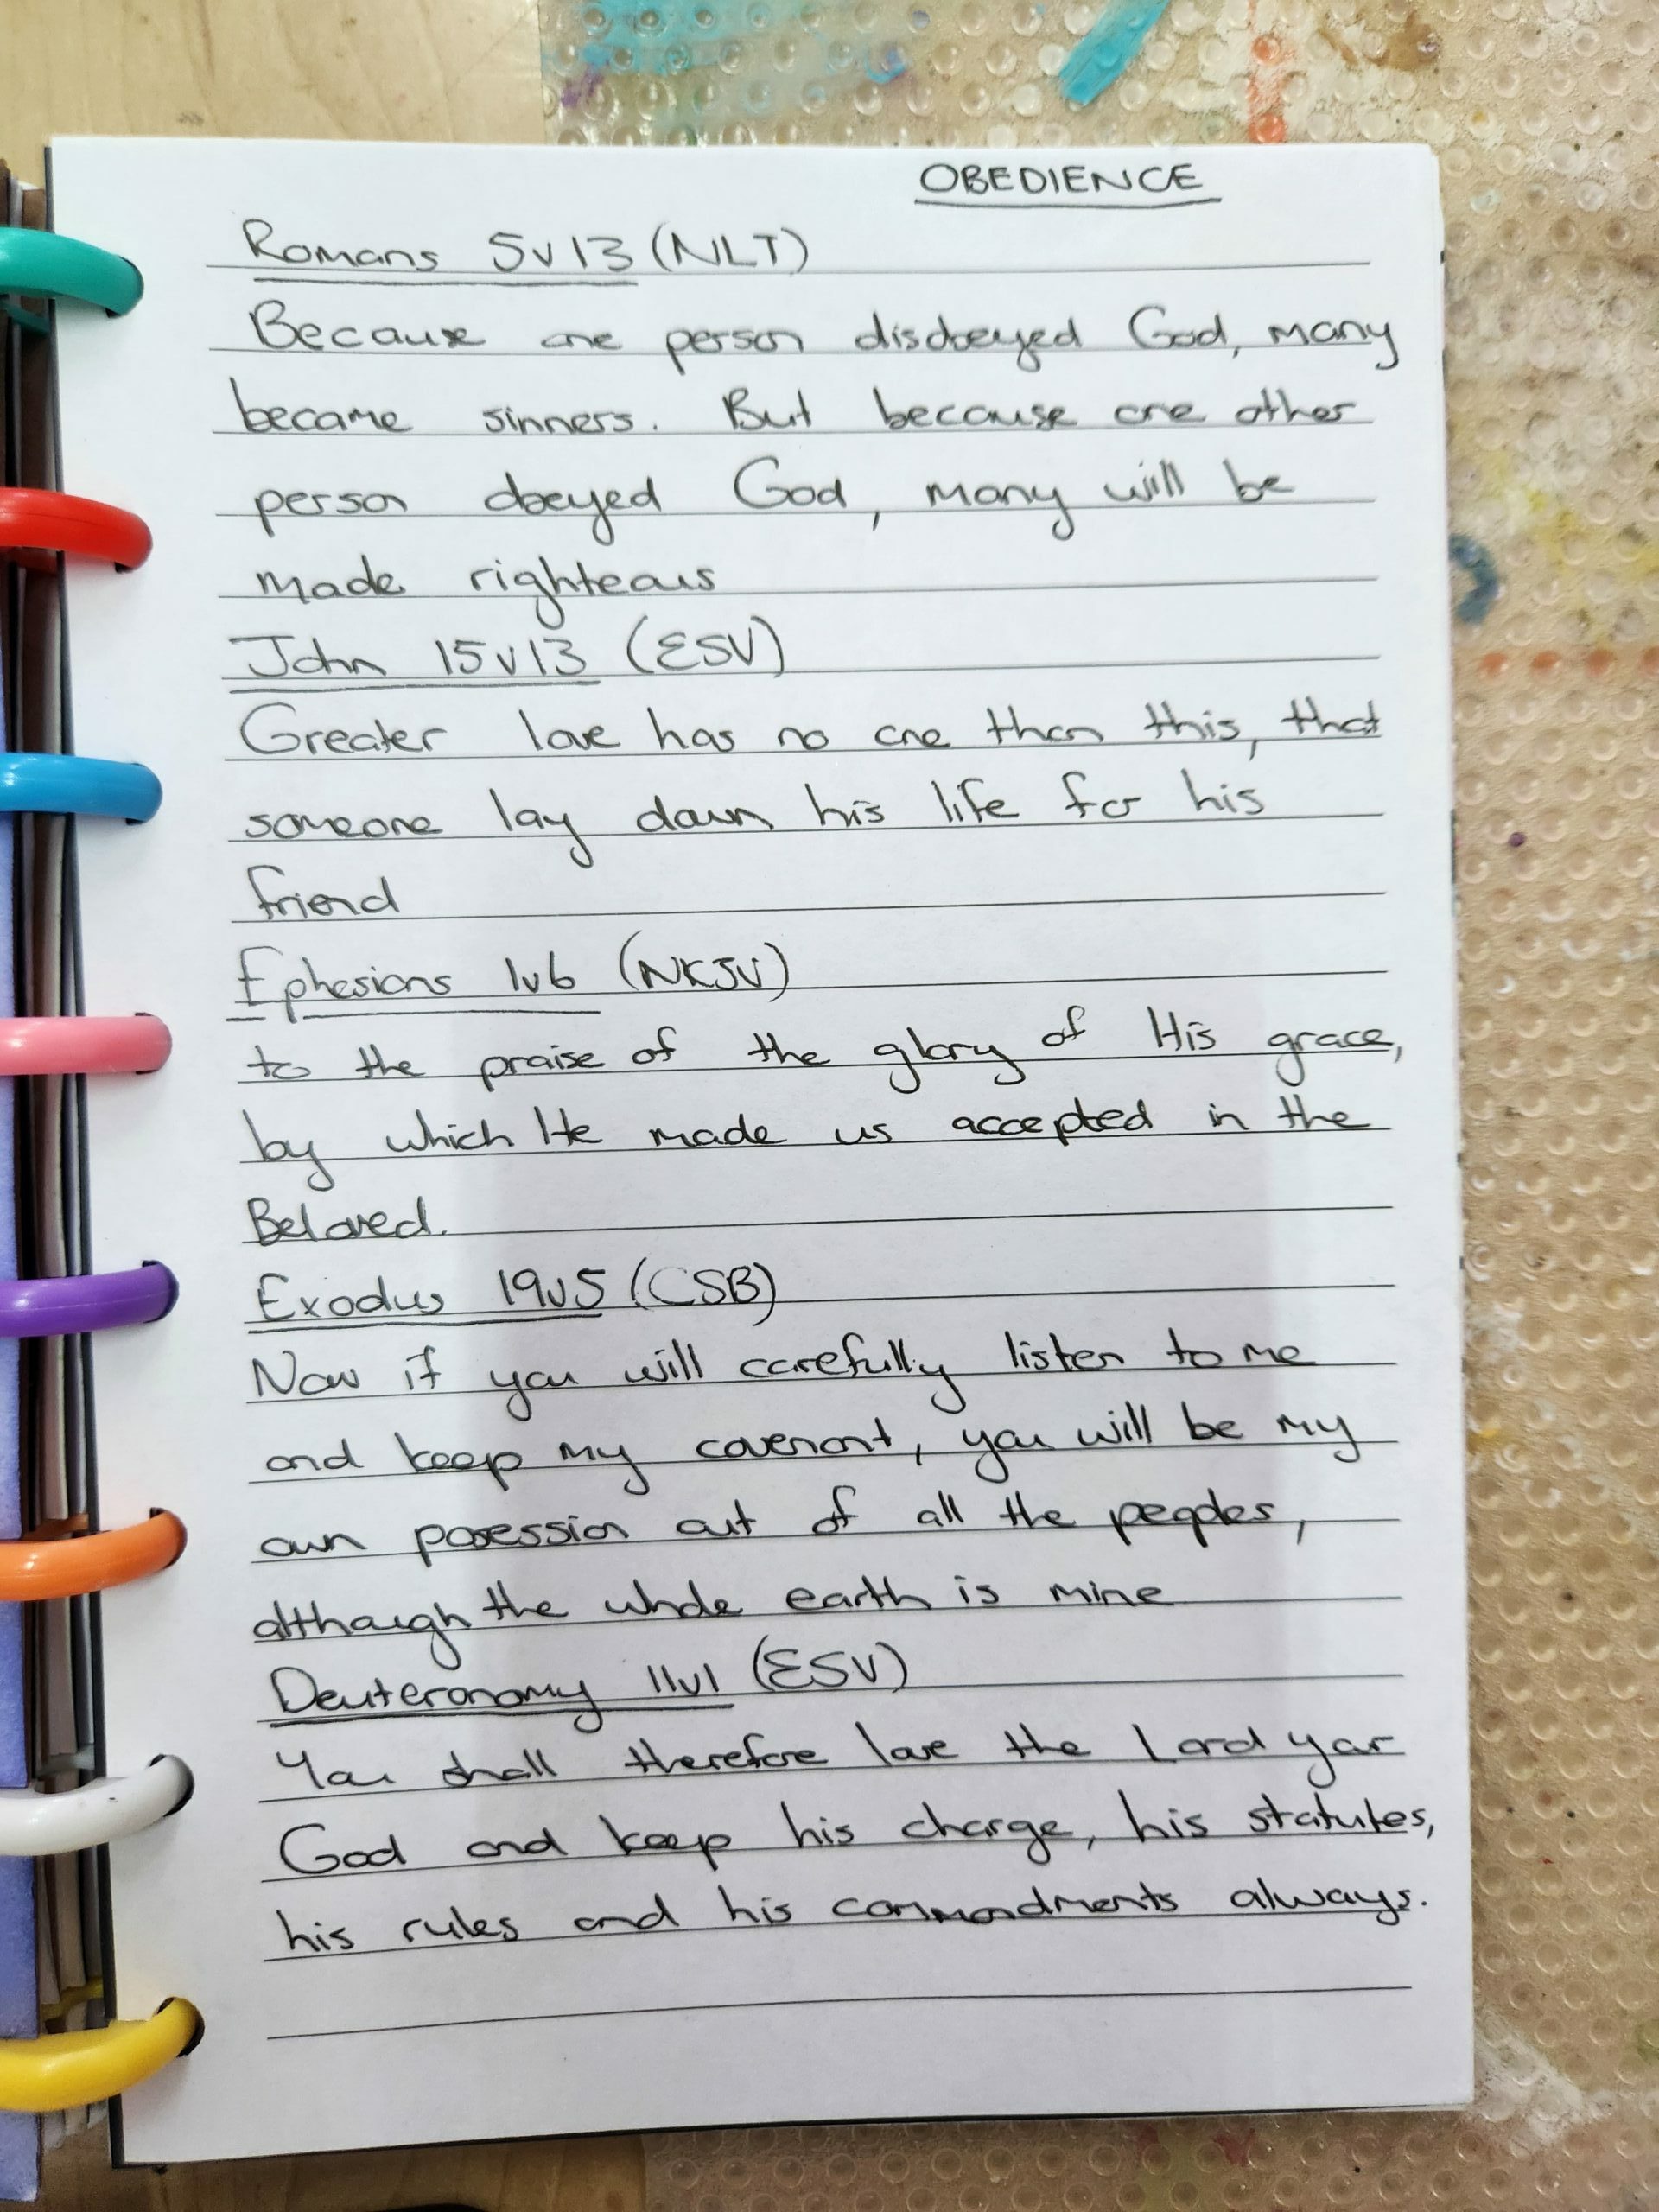 OBEDIENCE
Romans 5v13 (NLT)
Because one person disobeyed God, many
became sinners. But because one other
person obeyed God, many will be
made righteous
John 15v13 (ESV)
Greater love has no one than this, that
someone lay down his life for his
friend
Ephesians 1v6 (NKJV)
to the praise of the glory of His grace,
by which He made us accepted in the
Beloved.
Exodus 19v5 (CSB)
Now if you will carefully listen to me
and keep my covenant, you will be my
own posession out of all the peoples,
although the whole earth is mine
Deuteronomy 11v1 (ESV)
You shall therefore love the Lord your
God and keep his charge, his statutes,
his rules and his commandments always.